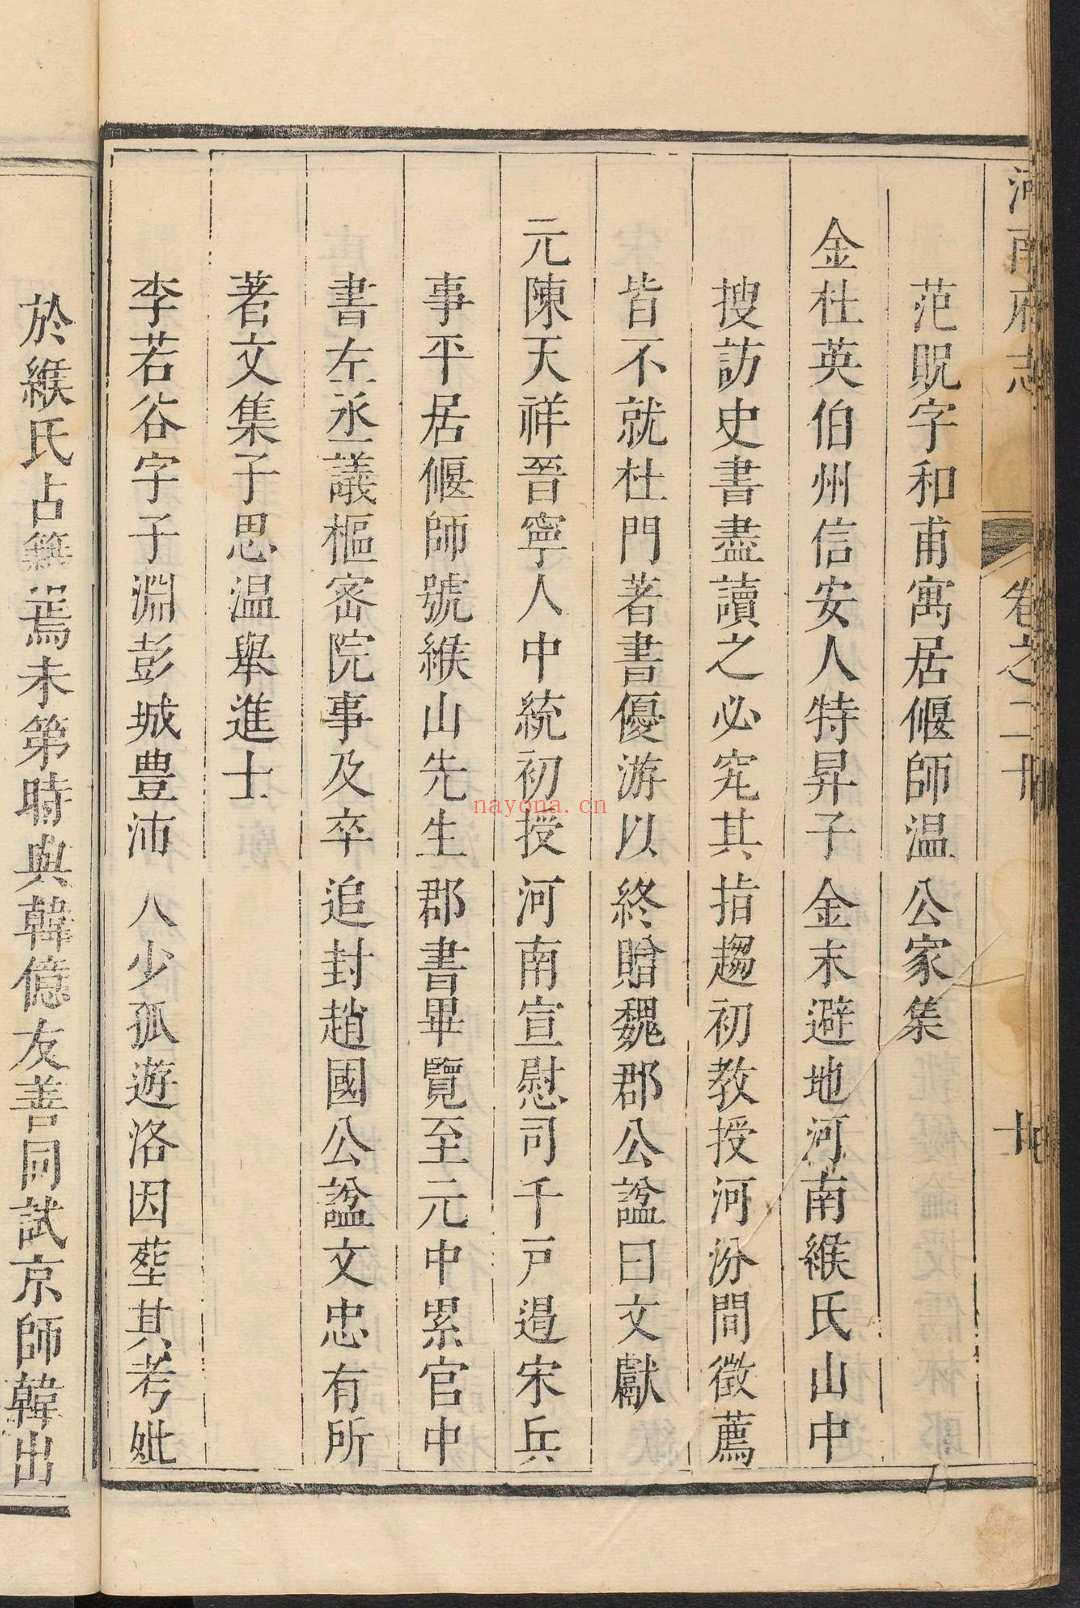 河南府志 卷之二十 十九
范貺字和甫寓居偃師温公家集
金杜英伯州信安人特昇子金末避地河南緱氏山中
搜訪史書盡讀之必究其指趨初教授河汾間徵薦
皆不就杜門著書優游以終贈魏郡公諡曰文獻
元陳天祥晉寧人中統初授河南宣慰司千戸過宋兵
事平居偃師號緱山先生郡書畢覽至元中累官中
書左丞議樞密院事及卒追封趙國公諡文忠有所
著文集子思温舉進士
李若谷字子淵彭城豊沛人少孤遊洛因塟其考妣
於緱氏占籍焉未第時與韓億友善同試京師韓出
nayona.cn